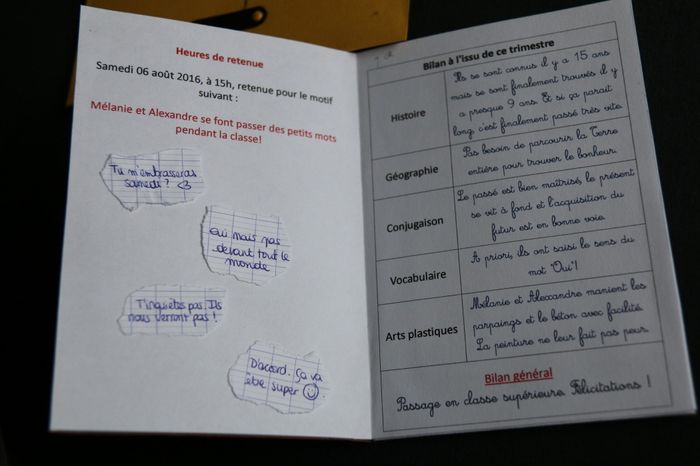 Heures de retenue
Samedi 06 août 2016, à 15h, retenue pour le motif
suivant :
Mélanie et Alexandre se font passer des petits mots
pendant la classe!
Tu m'embrasseras
samedi? <3
Oui mais pas
devant tout le
monde
T'inquiètes pas. Ils
nous verront pas !
D'accord. Ça va
être super ☺
Bilan à l'issu de ce trimestre
Histoire
Ils se sont connus il y a 15 ans
mais se sont finalement trouvés il y
a presque 9 ans. Et si ça parait
long c'est finalement passé très vite.
Géographie
Pas besoin de parcourir la Terre
entière pour trouver le bonheur.
Conjugaison
Le passé est bien maîtrisé, le présent
se vit à fond et l'acquisition du
futur est en bonne voie.
Vocabulaire
A priori, ils ont saisi le sens du
mot "Oui"!
Arts plastiques
Mélanie et Alexandre manient les
parpaings et le béton avec facilité.
La peinture ne leur fait pas peur.
Bilan général
Passage en classe supérieure. Félicitations !